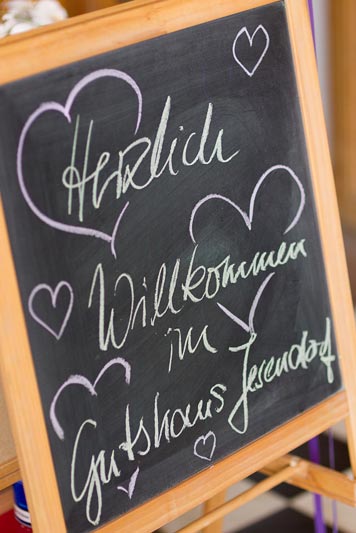 Herzlich
Willkommen
im
Gutshaus Jesendorf